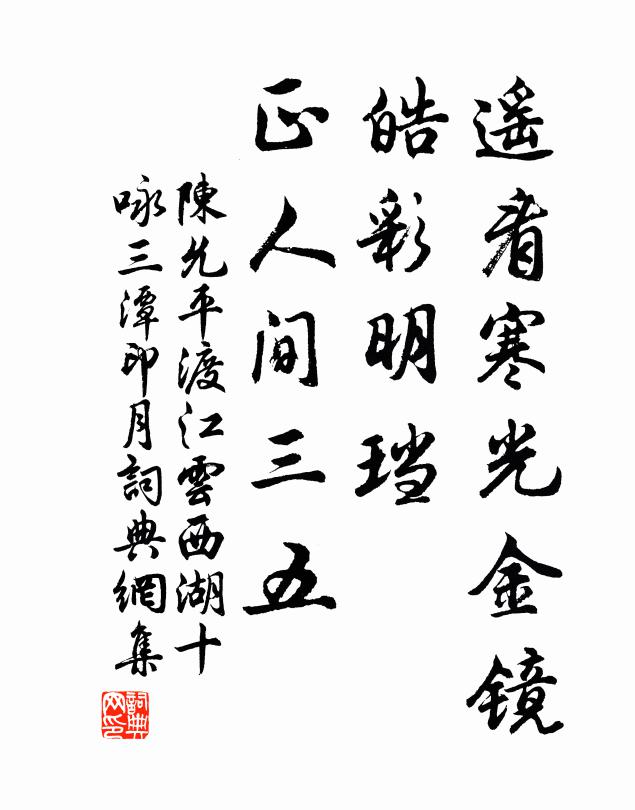 遥看寒光金镜
皓彩明珰
正人间三五
陳允平渡江雲西湖十
咏三潭印月詞典網集
詞典網印